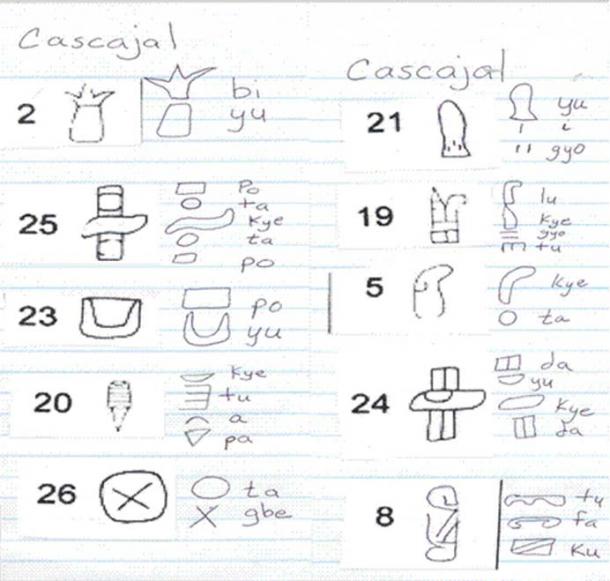 Cascajal
2 bi
yu
25 po
ta
kye
ta
po
23 po
yu
20 kye
tu
a
pa
26 ta
gbe
Cascajal
21 yu
i
gyo
19 lu
kye
gyo
tu
5 kye
ta
24 da
yu
kye
da
8 tu
fa
ku